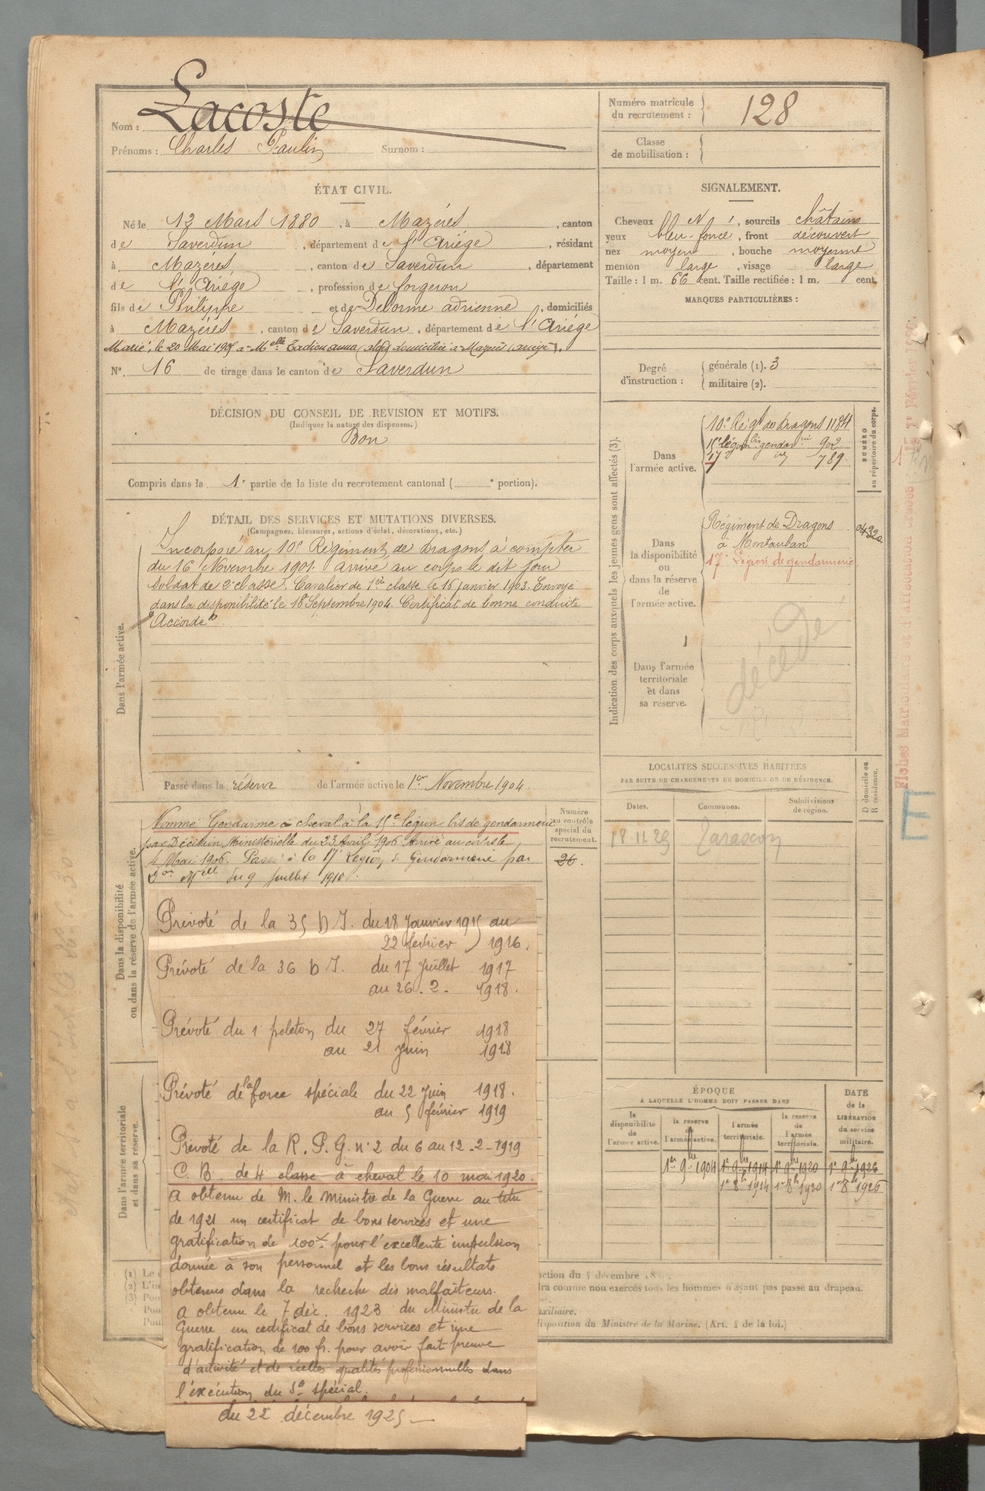 Nom : Lacoste
Prénoms : Charles Paulin Surnom :
Numéro matricule
du recrutement : 128
Classe
de mobilisation :
ÉTAT CIVIL.
Né le 13 Mars 1880, à Mazères, canton
de Saverdun, département de l'Ariège, résidant
à Mazères, canton de Saverdun, département
de l'Ariège, profession de forgeron
fils de Philippe et de Delorme adrienne, domiciliés
à Mazères, canton de Saverdun, département de l'Ariège
Marié, le 20 Mai 190 à Melle anna, domiciliée à Mazères (ariège).
N°. 16 de tirage dans le canton de Saverdun
SIGNALEMENT.
Cheveux, sourcils châtains
yeux bleu-foncé, front découvert
nez moyen, bouche moyenne
menton large, visage large
Taille : 1 m. 66 cent. Taille rectifiée : 1 m. cent.
MARQUES PARTICULIÈRES :
Degré
d'instruction :
générale (1). 3
militaire (2).
DÉCISION DU CONSEIL DE REVISION ET MOTIFS.
(Indiquer la nature des dispenses.)
Bon
Compris dans la 1e partie de la liste du recrutement cantonal ( e portion).
DÉTAIL DES SERVICES ET MUTATIONS DIVERSES.
(Campagnes, blessures, actions d'éclat, décorations, etc.)
Dans l'armée active.
Incorporé au 10e Régiment de dragons à compter
du 16 Novembre 1901. arrivé au corps le dit jour
soldat de 2e classe. Cavalier de 1ère classe le 15 janvier 1903. Envoyé
dans la disponibilité le 18 Septembre 1904. Certificat de bonne conduite
"Accordé"
Passé dans la réserve de l'armée active le 1er Novembre 1904
Indication des corps auxquels les jeunes gens sont affectés (3).
NUMÉRO
au répertoire du corps.
Dans
l'armée active.
10e Régt de dragons 1184
15e légion bis gendarie 902
17 789
Dans
la disponibilité
ou
dans la réserve
de
l'armée active.
Régiment de Dragons
à Montauban
17e Légion de gendarmerie
Dans l'armée
territoriale
et dans
sa réserve.
décédé
LOCALITÉS SUCCESSIVES HABITÉES
PAR SUITE DE CHANGEMENTS DE DOMICILE OU DE RÉSIDENCE.
Dates. Communes. Subdivisions
de région.
D domicile ou
R résidence.
18.11.25 Tarascon
Dans la disponibilité
ou dans la réserve de l'armée active.
Numéro
au contrôle
spécial du
recrutement.
26.
Nommé Gendarme à cheval à la 15e légion bis de gendarmerie
par Décision Ministérielle du 23 Avril 1906. Arrivé au corps le
Mai 1906. Passé à la 17e Légion de Gendarmerie par
Don Melle du 9 juillet 1910.
Prévoté de la 35 D I. du 18 Janvier 1915 au
22 février 1916.
Prévoté de la 36 D I. du 17 juillet 1917
au 26. 2. 1918.
Prévoté du 1 peloton du 27 février 1918
au 21 juin 1918
Prévoté de la force spéciale du 22 juin 1918.
au 5 février 1919
Prévoté de la R. P. G. n° 2 du 6 au 12-2-1919
C. B. de 4 classe à cheval le 10 mai 1920.
A obtenu de M. le ministre de la Guerre au titre
de 1921 un certificat de bons services et une
gratification de 100 fr. pour l'excellente impulsion
donnée à son personnel et les bons résultats
obtenus dans la recherche des malfaiteurs.
A obtenu le 7 déc. 1923 du Ministre de la
Guerre un certificat de bons services et une
gratification de 100 fr. pour avoir fait preuve
d'activité et de réelles qualités professionnelles dans
l'exécution du Sce spécial.
du 22 décembre 1925
Dans l'armée territoriale
et dans sa réserve.
ÉPOQUE
À LAQUELLE L'HOMME DOIT PASSER DANS
DATE
de la
LIBÉRATION
du service
militaire.
la
disponibilité
de
l'armée active.
la réserve
de
l'armée active.
l'armée
territoriale.
la réserve
de
l'armée
territoriale.
1er 9bre 1904 1er 9bre 1914 1er 9bre 1920 1er 9bre 1926
1er 8bre 1914 1er 8bre 1920 1er 8bre 1926
ction du 4 décembre 18
dra comme non exercés tous les hommes n'ayant pas passé au drapeau.
auxiliaire.
disposition du Ministre de la Marine. (Art. 4 de la loi.)
E